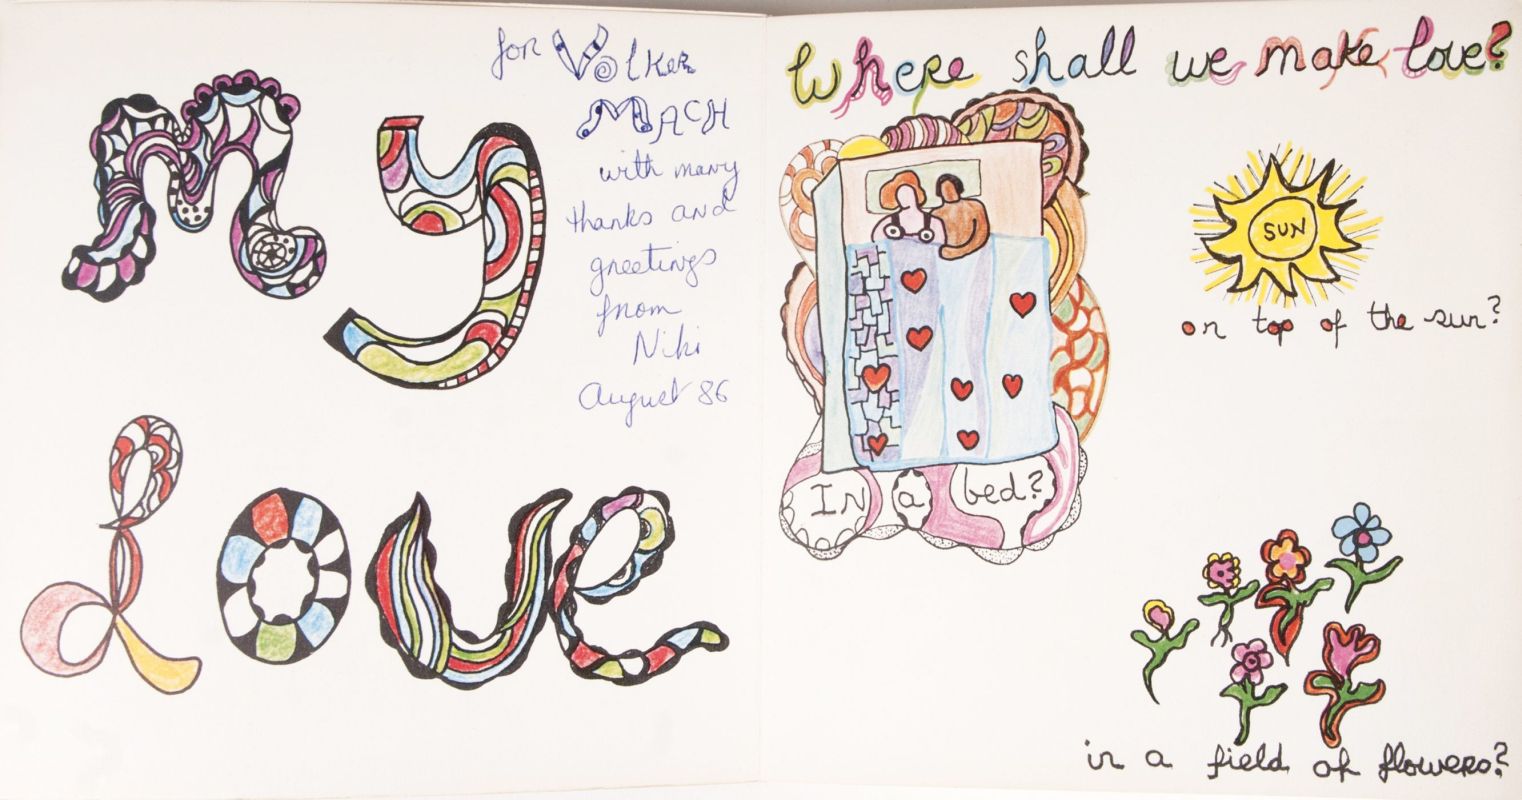 My
Love
for Volker
MACH
with many
thanks and
greetings
from
Niki
August 86
Where shall we make love?
SUN
on top of the sun?
In a bed?
in a field of flowers?